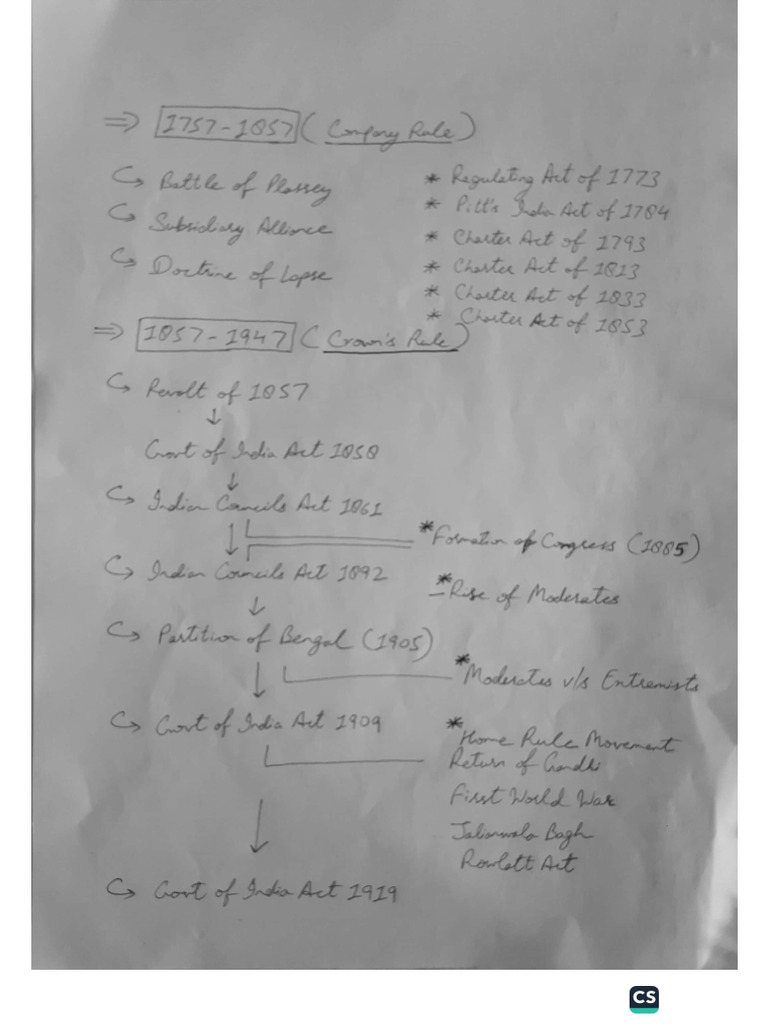 ⇒ 1757-1857 (Company Rule)
↪ Battle of Plassey
↪ Subsidiary Alliance
↪ Doctrine of Lapse
* Regulating Act of 1773
* Pitt's India Act of 1784
* Charter Act of 1793
* Charter Act of 1813
* Charter Act of 1833
* Charter Act of 1853
⇒ 1857-1947 (Crown's Rule)
↪ Revolt of 1857
↓
Govt of India Act 1858
↓
↪ Indian Councils Act 1861
↓
* Formation of Congress (1885)
↪ Indian Councils Act 1892
* Rise of Moderates
↓
↪ Partition of Bengal (1905)
↓
* Moderates v/s Extremists
↪ Govt of India Act 1909
* Home Rule Movement
Return of Gandhi
First World War
Jalianwala Bagh
Rowlett Act
↓
↪ Govt of India Act 1919
CS